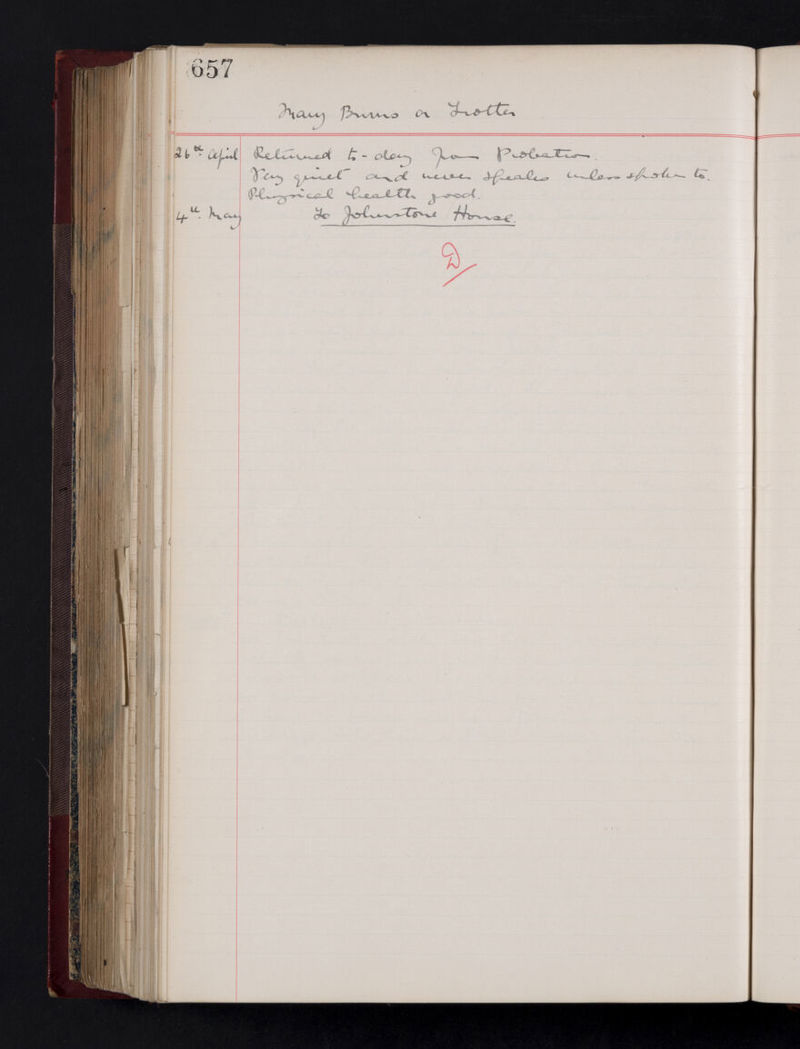 657
Mary Burns or Trotter
26th April Returned to-day from Probation.
Very quiet and never speaks unless spoken to.
Physical health good.
4th May To Johnstone House.
D